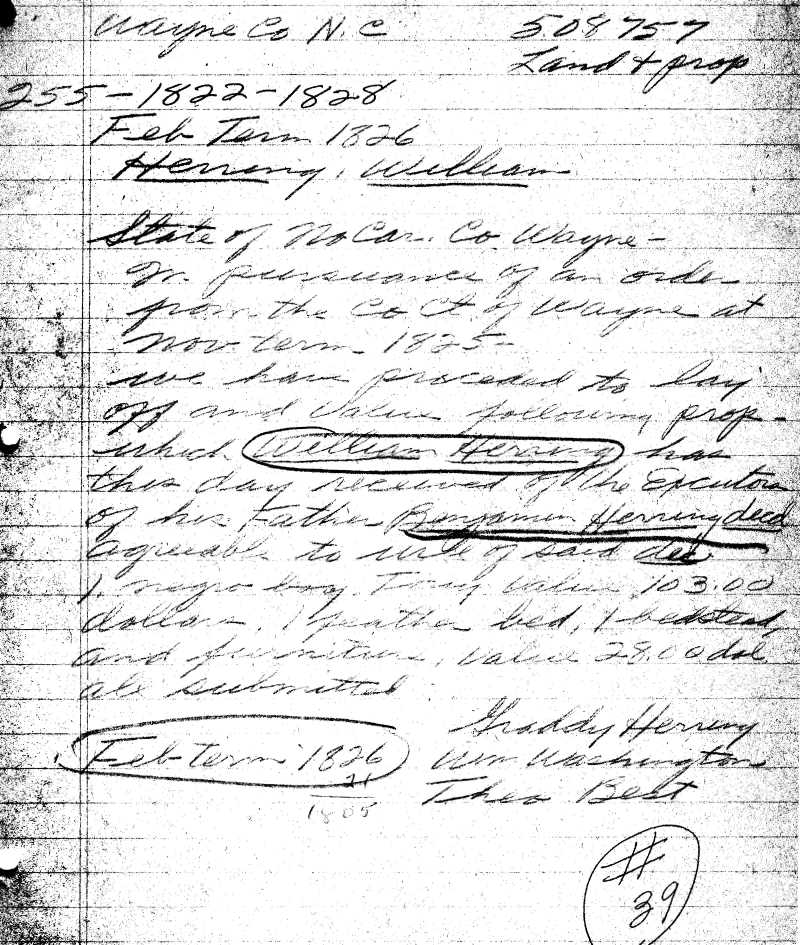 Wayne Co N.C
508757
Land & prop
255-1822-1828
Feb Term 1826
Herring, William
State of No Car. Co. Wayne-
In pursuance of an order
from the Co Ct. of Wayne at
Nov. term 1825-
we have proceded to lay
off and value following prop-
which William Herring has
this day received of the Excutors
of his Father Benjamin Herring decd
agreeable to will of said dec
1. negro boy Tony value 103.00
dollars, 1 feather bed, 1 bedstead,
and furniture, value 28.00 dol
all submitted
Graddy Herring
Feb term 1826
Wm Washington
21
Theo Best
1805
#
39